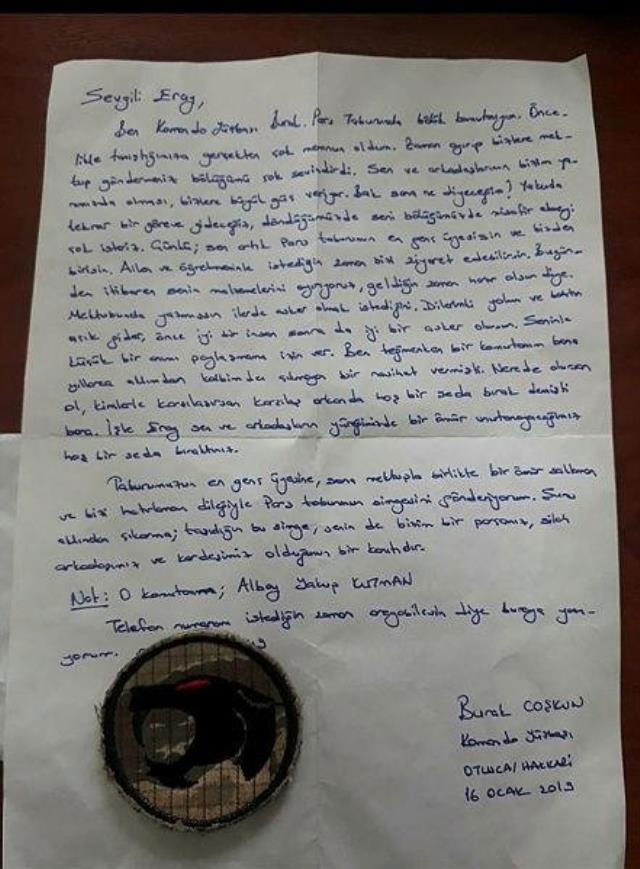 Sevgili Eray,
Ben Komando Yüzbaşı Burak. Pars Taburunda bölük komutanıyım. Önce-
likle tanıştığımıza gerçekten çok memnun oldum. Zaman ayırıp bizlere mek-
tup göndermeniz bölüğümü çok sevindirdi. Sen ve arkadaşlarının bizim ya-
nımızda olması, bizlere büyük güç veriyor. Bak sana ne diyeceğim! Yakında
tekrar bir göreve gideceğiz, döndüğümüzde seni bölüğümüzde misafir etmeyi
çok isteriz. Çünkü; sen artık Pars taburunun en genç üyesisin ve bizden
birisin. Ailen ve öğretmeninle istediğin zaman bizi ziyaret edebilirsin. Bugün-
den itibaren senin malzemelerini ayırıyoruz, geldiğin zaman hazır olsun diye.
Mektubunda yazmışsın ilerde asker olmak istediğini. Dilerim ki yolun ve bahtın
açık gider, önce iyi bir insan sonra da iyi bir asker olursun. Seninle
küçük bir anımı paylaşmama izin ver. Ben teğmenken bir komutanım bana
yıllarca aklımdan kalbimden çıkmayan bir nasihat vermişti. Nerede olursan
ol, kimlerle karşılaşırsan karşılaş arkanda hoş bir seda bırak demişti
bana. İşte Eray sen ve arkadaşların yüreğimizde bir ömür unutamayacağımız
hoş bir seda bıraktınız.
Taburumuzun en genç üyesine, sana mektupla birlikte bir ömür saklaman
ve bizi hatırlaman dileğiyle Pars taburunun simgesini gönderiyorum. Şunu
aklından çıkarma; taşıdığın bu simge, senin de bizim bir parçamız, silah
arkadaşımız ve kardeşimiz olduğunun bir kanıtıdır.
Not: O komutanım; Albay Yakup KUTMAN
Telefon numaramı istediğin zaman arayabilesin diye buraya yazı-
yorum.
Burak COŞKUN
Komando Yüzbaşı
OTLUCA/HAKKARİ
16 OCAK 2019